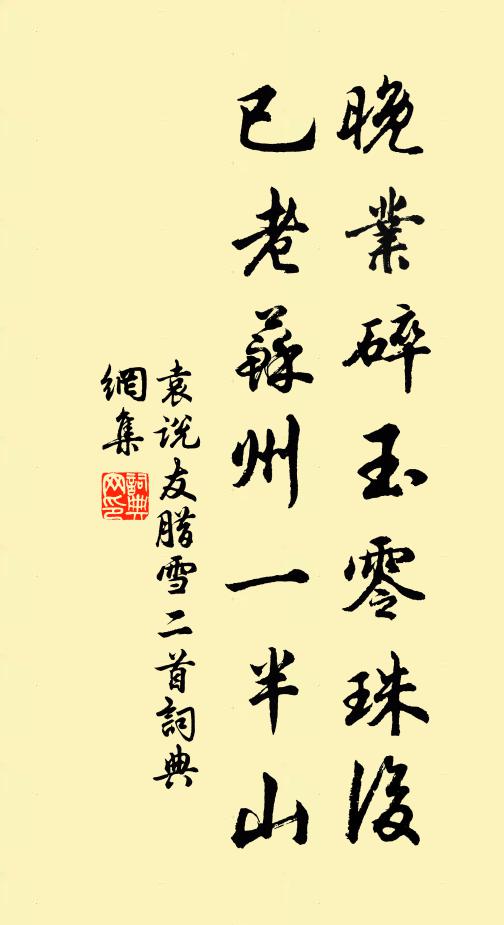 晚業碎玉零珠後
已老蘇州一半山
袁説友腊雪二首詞典
網集
詞典
网印